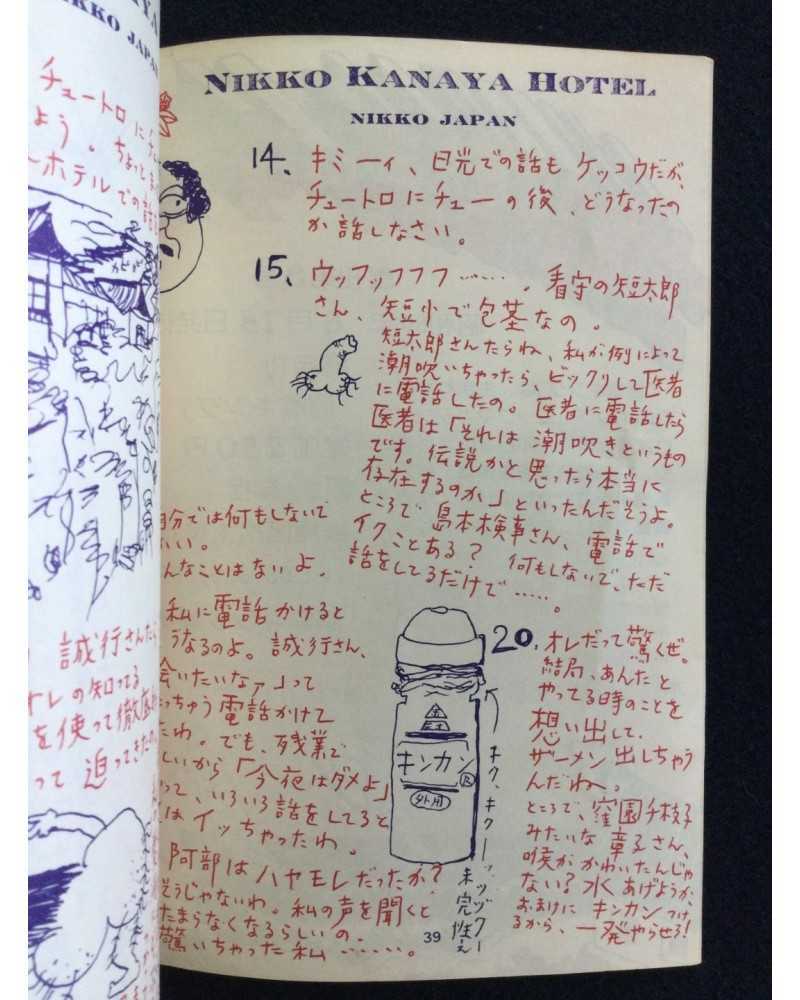 KKO JAPAN
チュートロに
よう。ちょっとま
ホテルでの話
誠行さんたら
オレの知ってる
を使って徹底
って 追ってきたの
NIKKO KANAYA HOTEL
NIKKO JAPAN
14、キミーィ、日光での話も ケッコウだが、
チュートロにチューの後、どうなったの
か話しなさい。
15、ウッフッフフフ……。看守の短太郎
さん、短小で包茎なの。
短太郎さんたらね、私が例によって
潮吹いちゃったら、ビックリして医者
に電話したの。医者に電話したら
医者は「それは潮吹きというもの
です。伝説かと思ったら本当に
存在するのか」といったんだそうよ。
ところで島本検事さん、電話で
イクことある？ 何もしないで、ただ
話をしてるだけで……。
自分では何もしないで
いい。
んなことはないよ。
私に電話かけると
うなるのよ。誠行さん、
会いたいなァ」って
っちゃう電話かけて
たわ。でも、残業で
しいから「今夜はダメよ」
って、いろいろ話をしてると
はイッちゃったわ。
阿部はハヤモレだったか？
そうじゃないわ。私の声を聞くと
たまらなくなるらしいの。
驚いちゃった私……。
キンカン®
外用
キク、キクーッ、ッヅクー
20、オレだって驚くぜ。
結局、あんたと
やってる時のことを
想い出して、
ザーメン出しちゃう
んだわへ。
ところで、窪園千枝子
みたいな章子さん、
喉がかわいたんじゃ
ない？水あげようか、
おまけにキンカンつけ
るから、一発やらせろ！
39